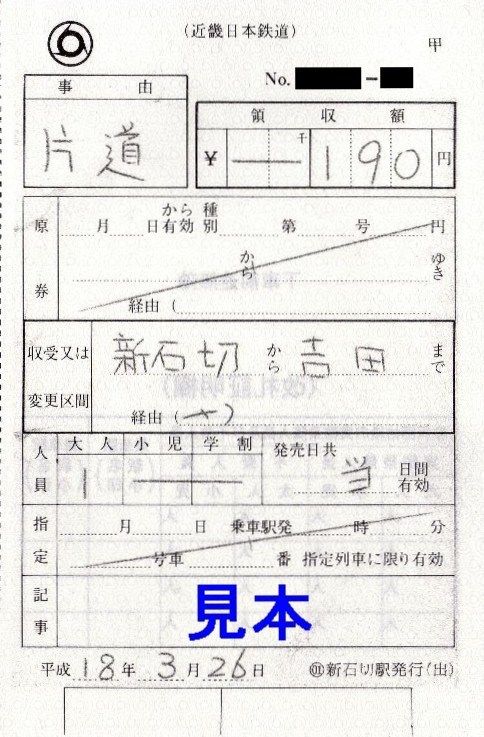 (近畿日本鉄道)
甲
No. ー
事 由
片道
領 収 額
¥ 千 190 円
原券
月 日から有効 種別 第 号 円
から ゆき
経由(
収受又は変更区間
新石切 から 吉田 まで
経由( )
人員
大人 小児 学割
1
発売日共 当 日間有効
指定
月 日 乗車駅発 時 分
号車 番 指定列車に限り有効
記事
見本
平成 18 年 3 月 26 日
新石切駅発行(出)